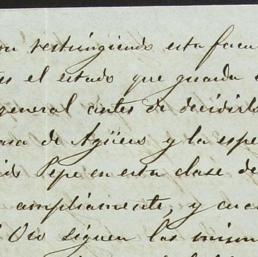 restringiendo esta fa
es el estado que guarda
general antes de decidirlo
casa de Agüero y la espe
Pepe en esta clase de
ampliamente, y cua
Oro siguen las mism